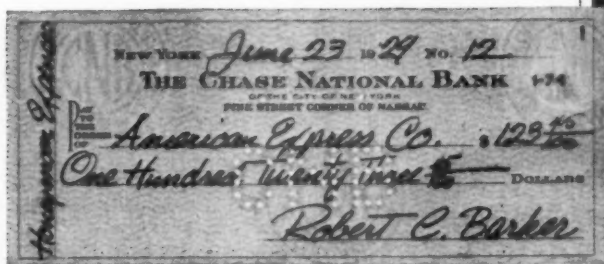 NEW YORK June 23 1929 NO. 12
THE CHASE NATIONAL BANK 1-74
OF THE CITY OF NEW YORK
PINE STREET CORNER OF NASSAU
PAY TO THE ORDER OF American Express Co. $ 123 45/100
One Hundred Twenty three 45/100 DOLLARS
Robert C. Barker
Honeymoon Expenses